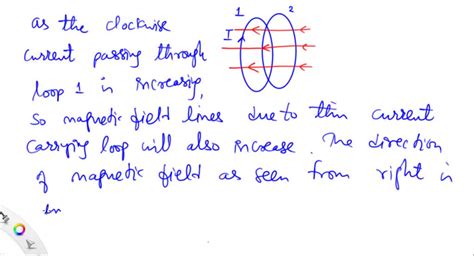 as the clockwise
1 2
current passing through
I
loop 1 is increasing,
so magnetic field lines due to this current
carrying loop will also increase. The direction
of magnetic field as seen from right is